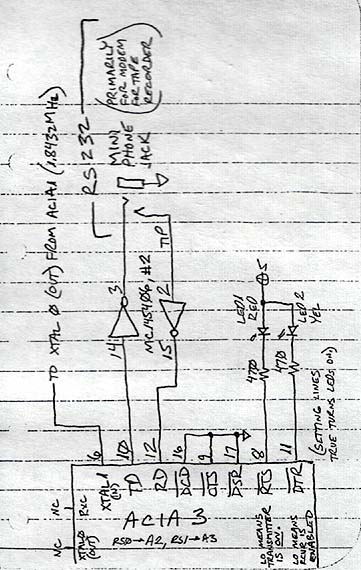 TO XTAL Ø (OUT) FROM ACIA 1 (1.8432MHz)
RS232
(PRIMARILY
FOR MODEM
FOR TAPE
RECORDER)
MINI
PHONE
JACK
TIP
14
3
MC145406 #2
15
2
+5
LED1
RED
LED2
YEL
47Ø
47Ø
(SETTING LINES
TRUE TURNS LEDS ON)
6
1Ø
12
16
9
17
8
11
NC
NC
XTALØ
(OUT)
RXC
XTAL1
(IN)
TD
RD
DCD
CTS
DSR
RTS
DTR
ACIA 3
RSØ→A2, RS1→A3
LO MEANS
TRANSMITTER
IS ON
LO MEANS
RCVR IS
ENABLED